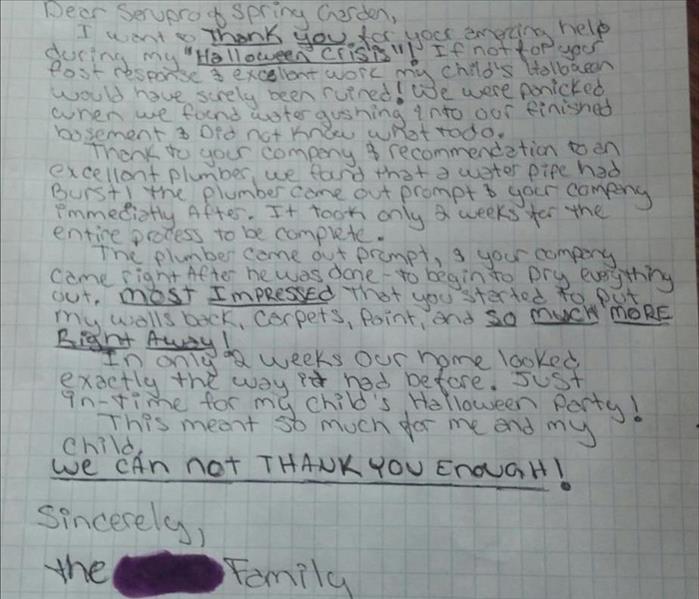 Dear Servpro of Spring Garden,
I want to Thank you for your amazing help
during my "Halloween Crisis"! If not for your
fast response & excellent work my child's Halloween
would have surely been ruined! We were panicked
when we found water gushing into our finished
basement & Did not know what to do.
Thank to your company & recommendation to an
excellent plumber, we found that a water pipe had
Burst! the plumber came out prompt & your company
immediatly After. It took only 2 weeks for the
entire process to be complete.
The plumber came out prompt, & your company
came right After he was done - to begin to Dry everything
out. most Impressed that you started to put
my walls back, carpets, paint, and so much more
Right Away!
In only 2 weeks our home looked
exactly the way it had before. Just
in-time for my child's Halloween Party!
This meant so much for me and my
child.
We can not THANK YOU Enough!
Sincerely,
the Family